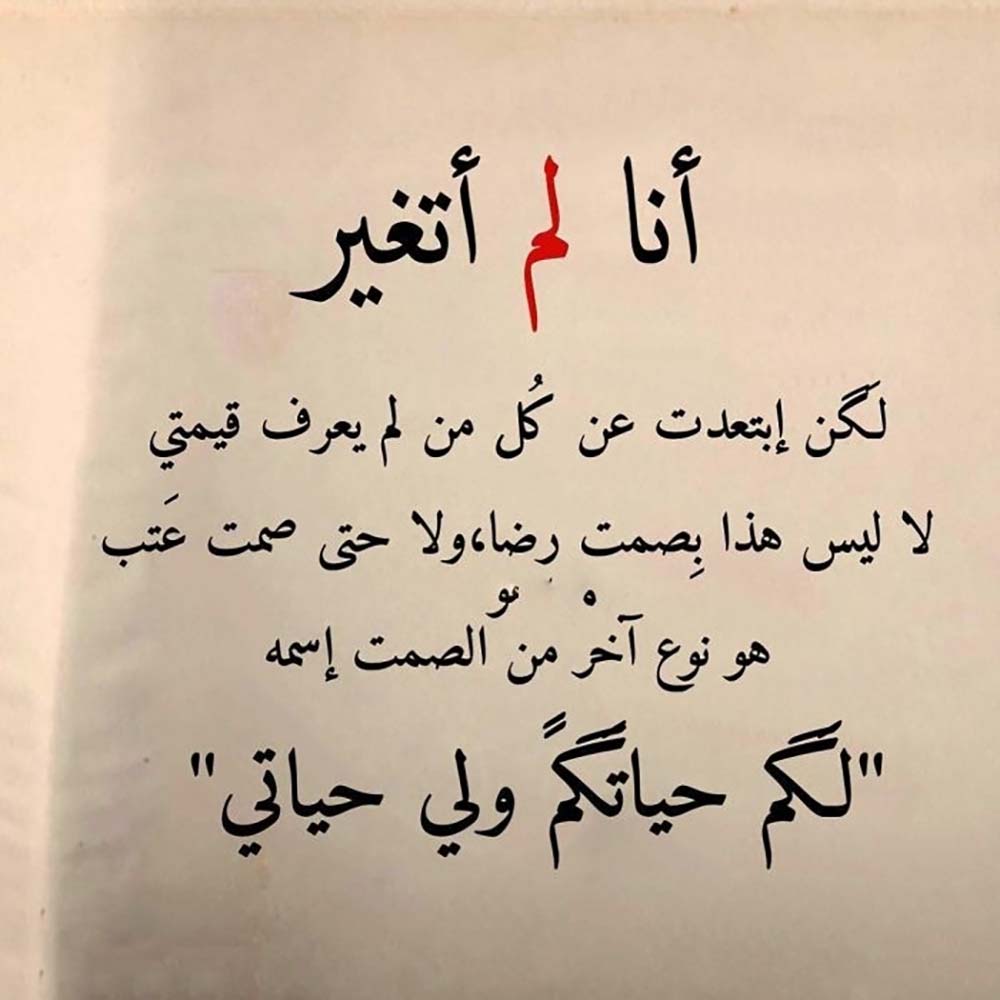 أنا لم أتغير
لَكن إبتعدت عن كُل من لم يعرف قيمتي
لا ليس هذا بِصمت رضا،ولا حتى صمت عَتب
هو نوع آخرْ منُ الصمت إسمه
"لَكم حياتَكمً ولي حياتي"